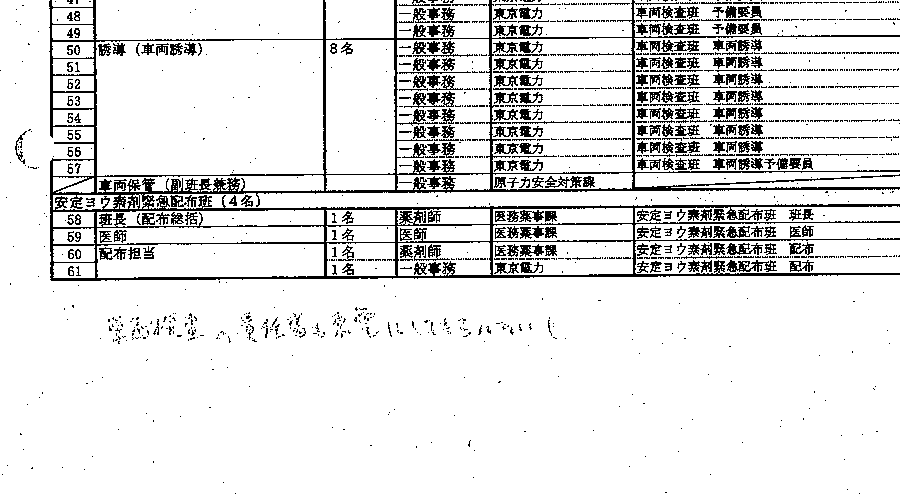 47 一般事務 東京電力 車両検査班
48 一般事務 東京電力 車両検査班 予備要員
49 一般事務 東京電力 車両検査班 予備要員
50 誘導（車両誘導） 8名 一般事務 東京電力 車両検査班 車両誘導
51 一般事務 東京電力 車両検査班 車両誘導
52 一般事務 東京電力 車両検査班 車両誘導
53 一般事務 東京電力 車両検査班 車両誘導
54 一般事務 東京電力 車両検査班 車両誘導
55 一般事務 東京電力 車両検査班 車両誘導
56 一般事務 東京電力 車両検査班 車両誘導
57 一般事務 東京電力 車両検査班 車両誘導予備要員
車両保管（副班長兼務） 一般事務 原子力安全対策課
安定ヨウ素剤緊急配布班（4名）
58 班長（配布総括） 1名 薬剤師 医務薬事課 安定ヨウ素剤緊急配布班 班長
59 医師 1名 医師 医務薬事課 安定ヨウ素剤緊急配布班 医師
60 配布担当 1名 薬剤師 医務薬事課 安定ヨウ素剤緊急配布班 配布
61 1名 一般事務 東京電力 安定ヨウ素剤緊急配布班 配布
車両検査の責任者も東電に